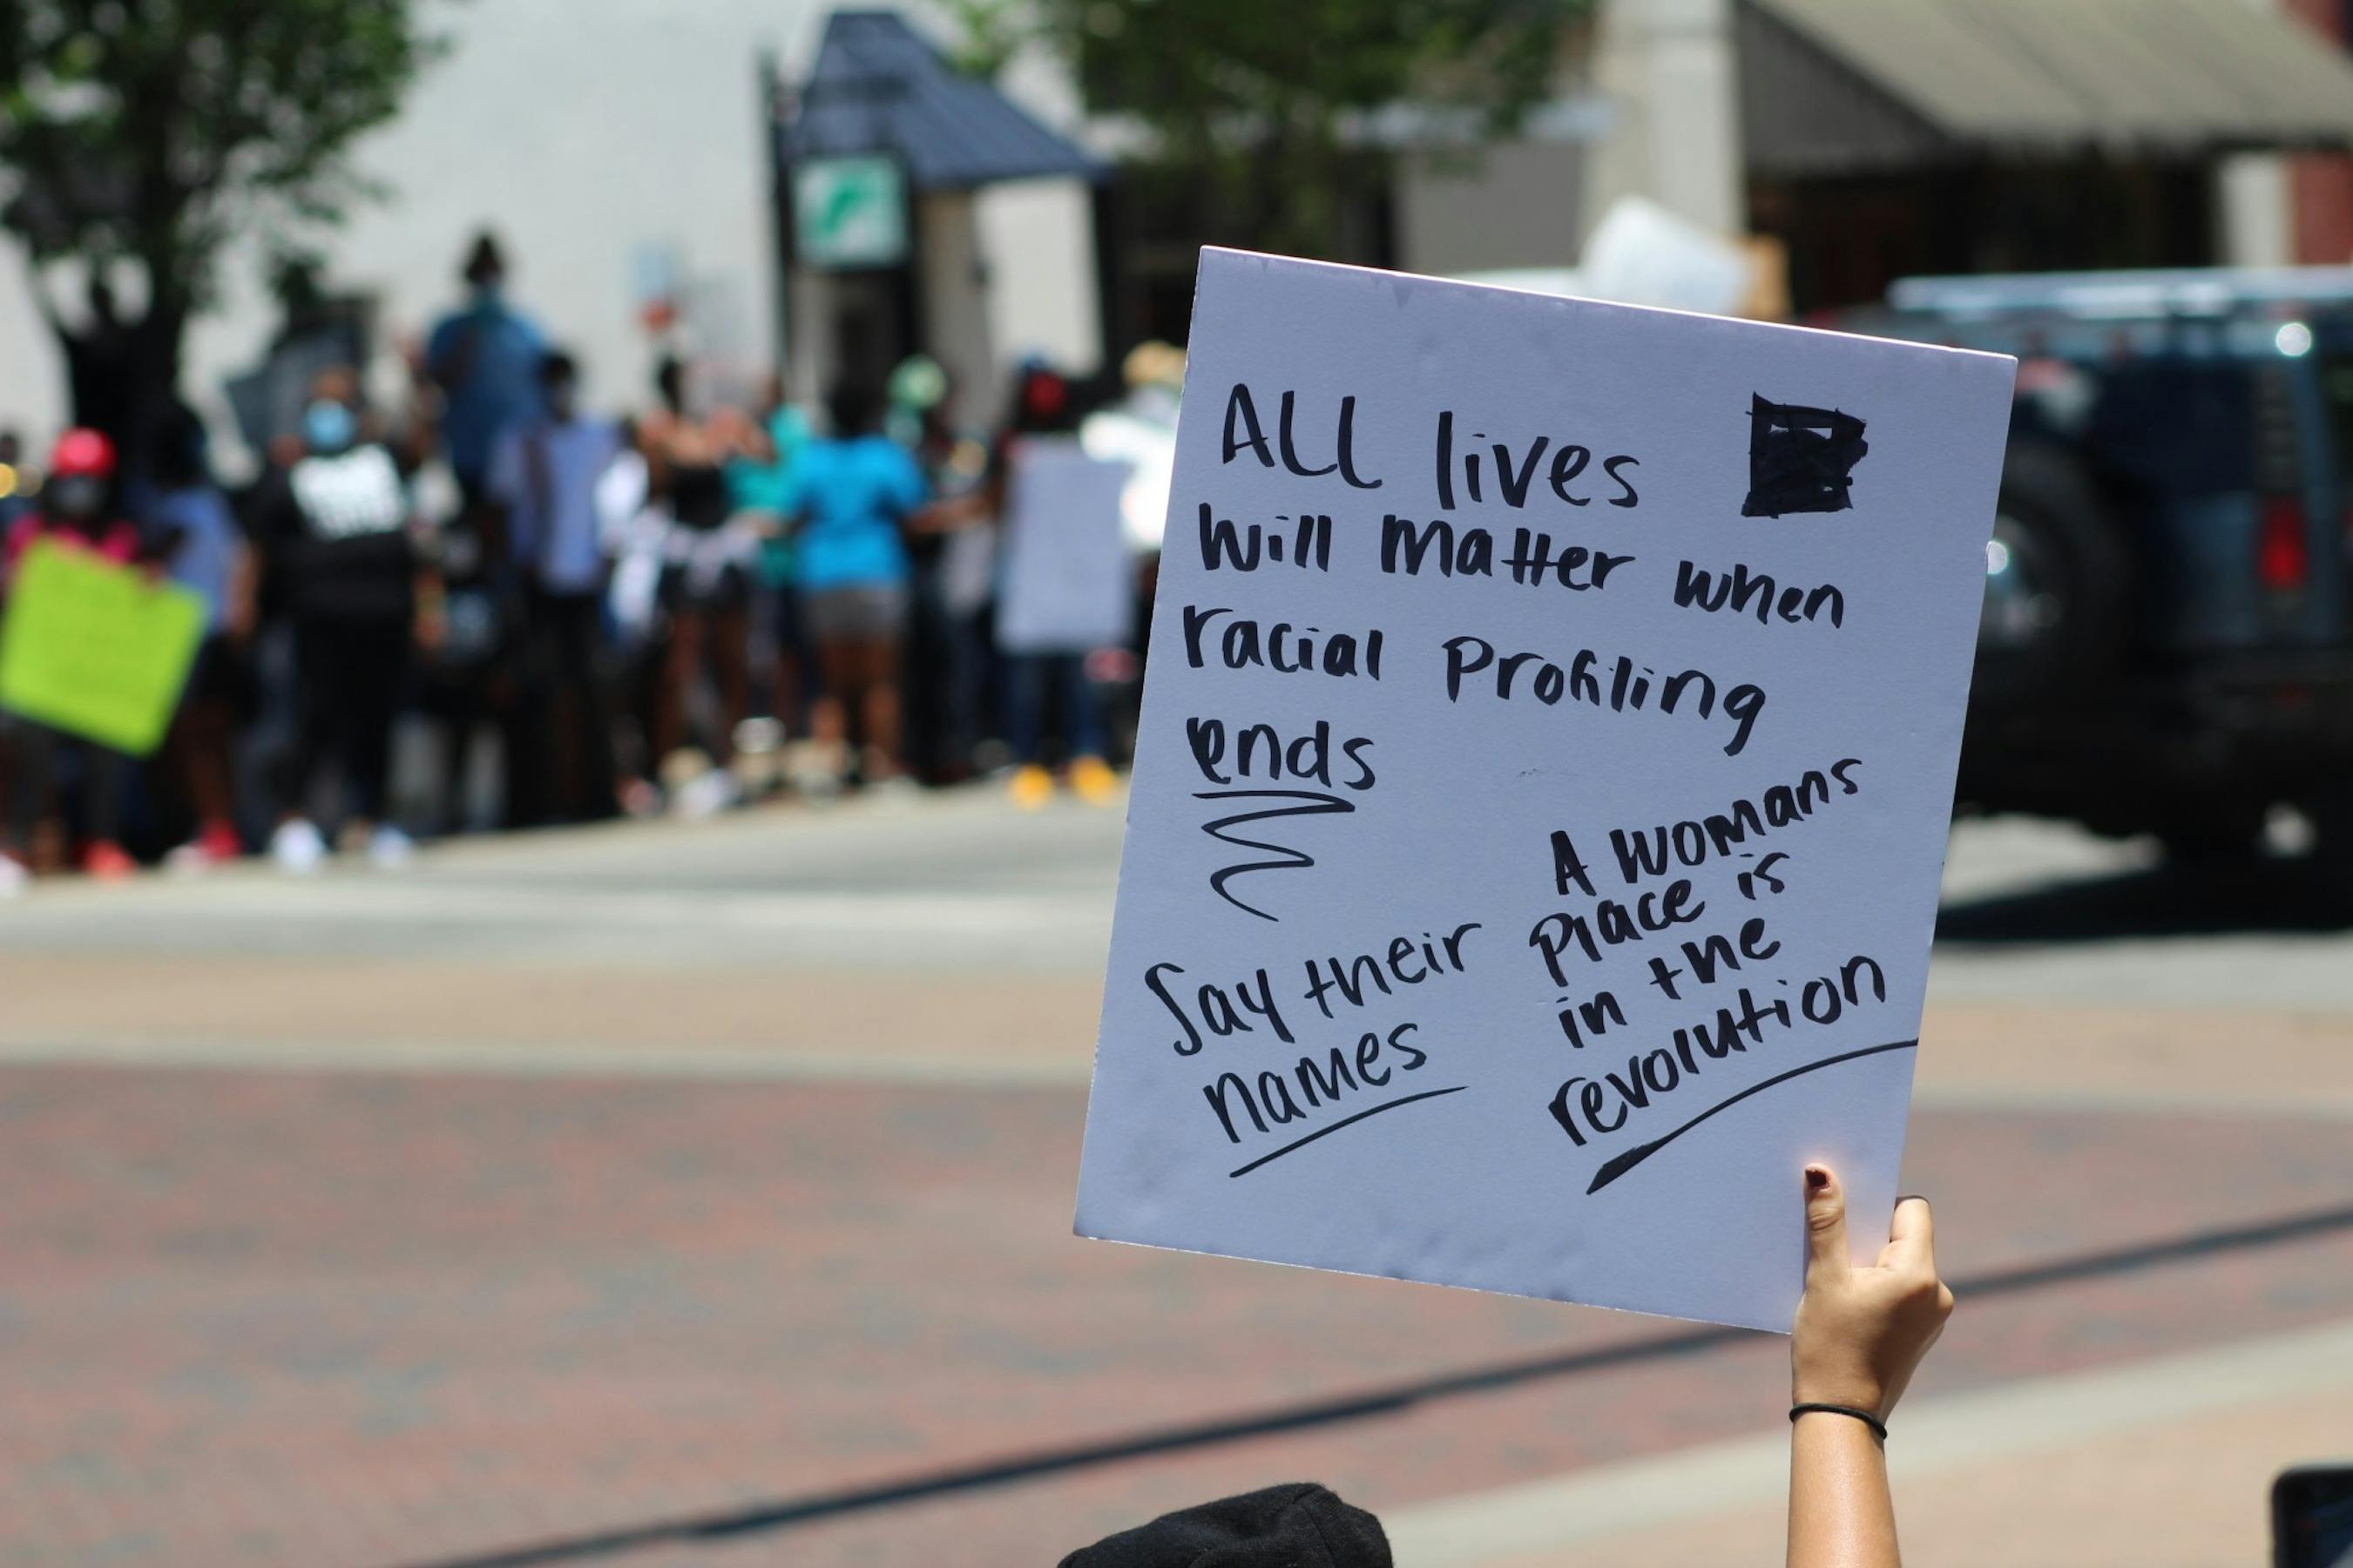 ALL lives
will matter when
racial Profiling
ends
Say their
names
A womans
place is
in the
revolution